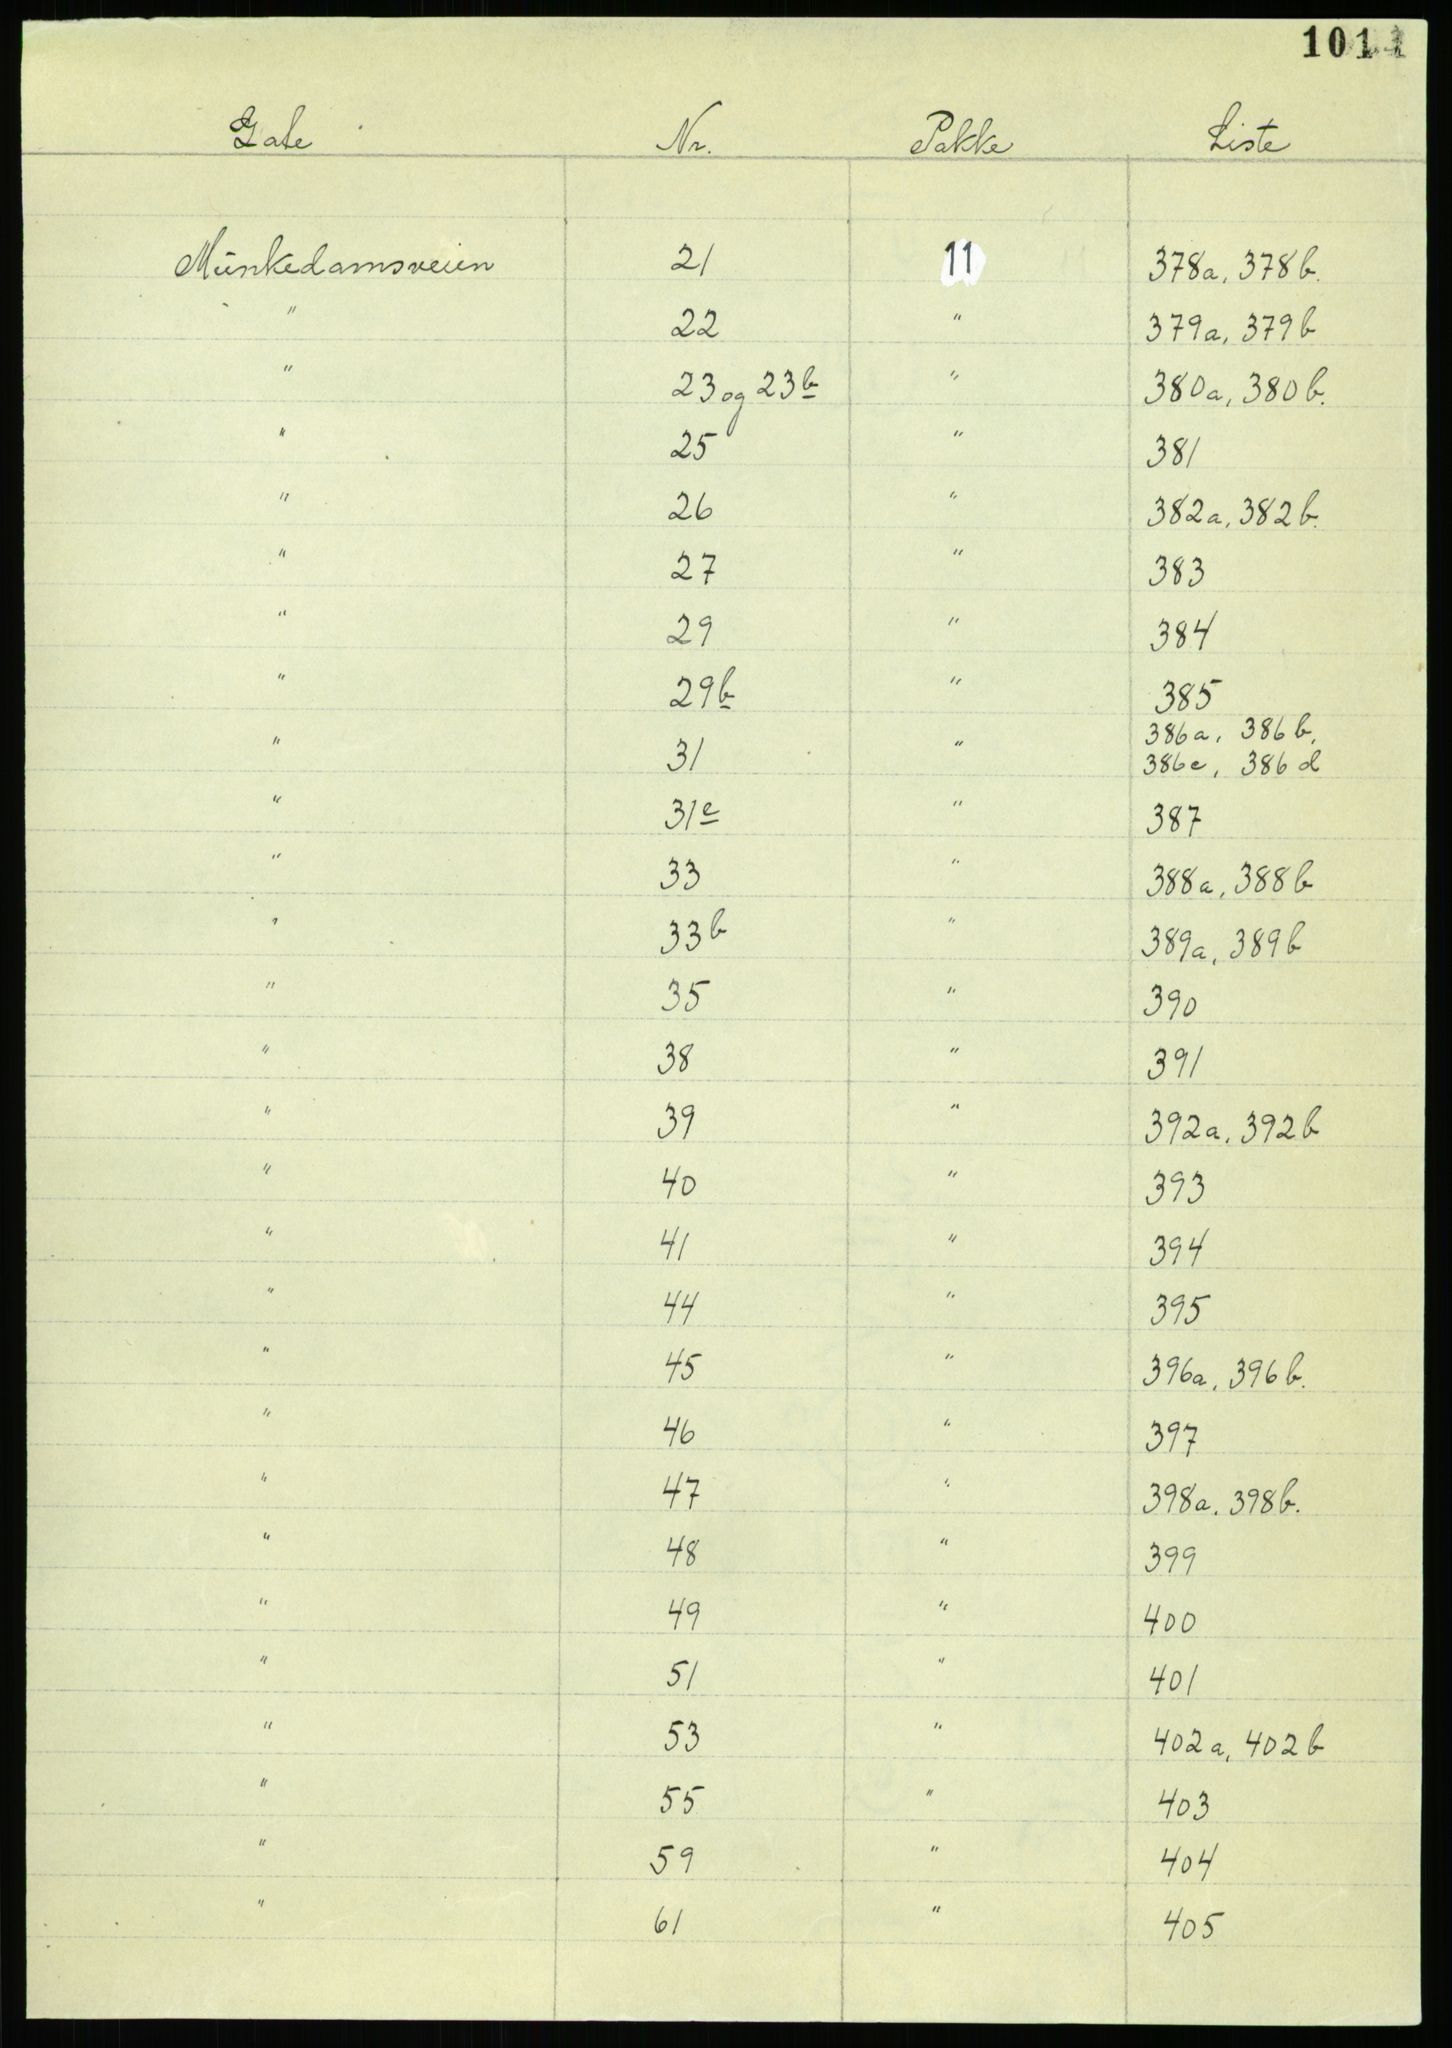 101
Gate Nr. Pakke Liste
Munkedamsveien 21 11 378a, 378b.
" 22 " 379a, 379b
" 23 og 23b " 380a, 380b.
" 25 " 381
" 26 " 382a, 382b.
" 27 " 383
" 29 " 384
" 29b " 385
" 31 " 386a, 386b,
386c, 386d
" 31c " 387
" 33 " 388a, 388b
" 33b " 389a, 389b
" 35 " 390
" 38 " 391
" 39 " 392a, 392b
" 40 " 393
" 41 " 394
" 44 " 395
" 45 " 396a, 396b.
" 46 " 397
" 47 " 398a, 398b.
" 48 " 399
" 49 " 400
" 51 " 401
" 53 " 402a, 402b
" 55 " 403
" 59 " 404
" 61 " 405